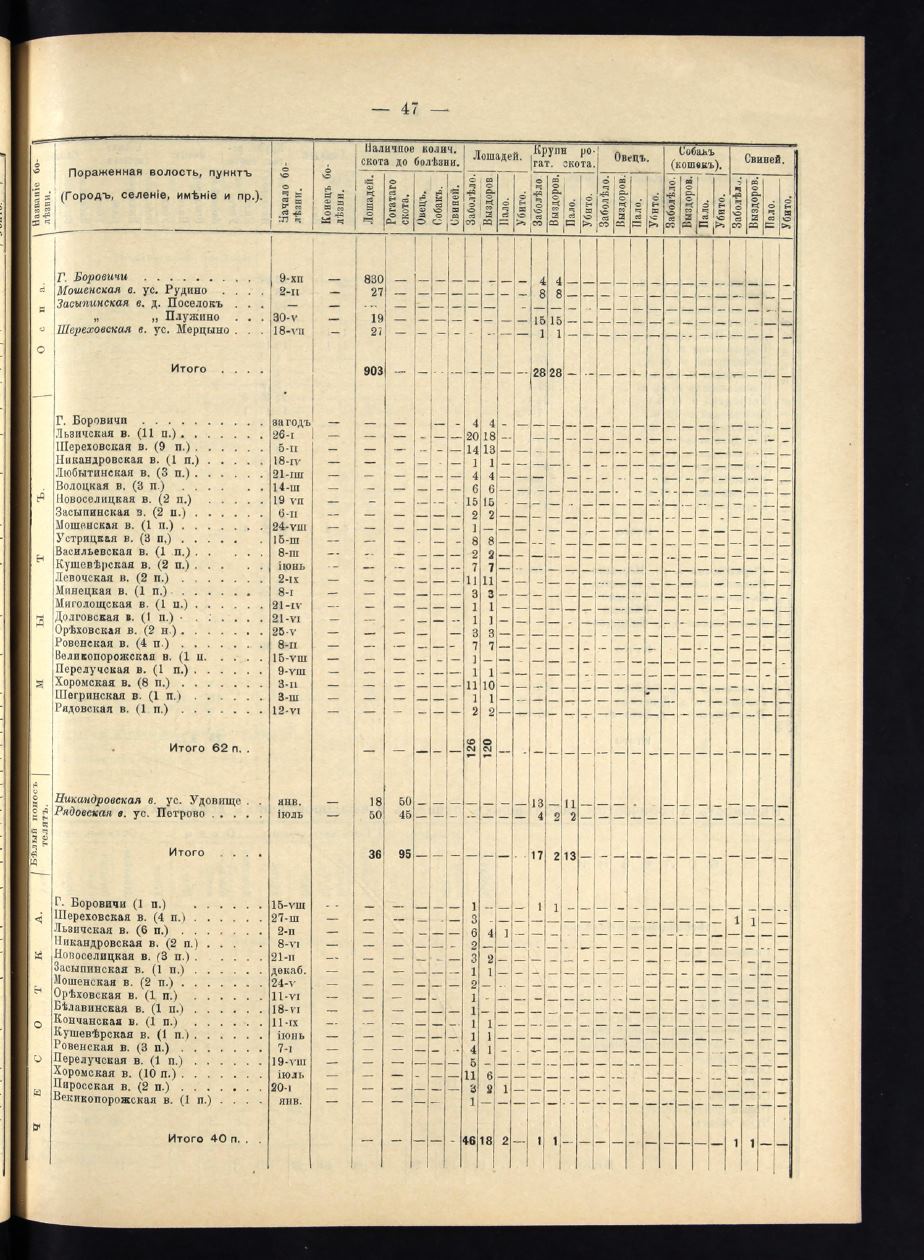 — 47 —
Названіе бо-
лѣзни.
Пораженная волость, пунктъ
(Городъ, селеніе, имѣніе и пр.).
Начало бо-
лѣзни.
Конецъ бо-
лѣзни.
Наличное колич.
скота до болѣзни.
Лошадей.
Рогатаго
скота.
Овецъ.
Собакъ.
Свиней.
Лошадей.
Заболѣло.
Выздоров.
Пало.
Убито.
Крупн ро-
гат. скота.
Заболѣло
Выздоров.
Пало.
Убито.
Овецъ.
Заболѣло.
Выздоров.
Пало.
Убито.
Собакъ
(кошекъ).
Заболѣло.
Выздоров.
Пало.
Убито.
Свиней.
Заболѣл..
Выздоров.
Пало.
Убито.
Оспа.
Г. Боровичи . . . . . . . . . 9-хп — 830 — — — — — — — — — 4 4 — — — — — — — — — — — — — —
Мошенская в. ус. Рудино . . . . 2-п — 27 — — — — — — — — — 8 8 — — — — — — — — — — — — — —
Засыпинская в. д. Поселокъ . . . — — — — — — — — — — — — — — — — — — — — — — — — — — — —
„ „ Плужино . . . 30-v — 19 — — — — — — — — — 15 15 — — — — — — — — — — — — — —
Шереховская в. ус. Мерцыно . . . 18-vп — 27 — — — — — — — — — 1 1 — — — — — — — — — — — — — —
Итого . . . . 903 — — — — — — — — — 28 28 — — — — — — — — — — — — — —
МЫТЪ.
Г. Боровичи . . . . . . . . . . за годъ — — — — — — 4 4 — — — — — — — — — — — — — — — — — —
Льзичская в. (11 п.) . . . . . . . 26-ɪ — — — — — — 20 18 — — — — — — — — — — — — — — — — — —
Шереховская в. (9 п.) . . . . . . 5-п — — — — — — 14 13 — — — — — — — — — — — — — — — — — —
Никандровская в. (1 п.) . . . . . 18-ɪv — — — — — — 1 1 — — — — — — — — — — — — — — — — — —
Любытинская в. (3 п.) . . . . . . 21-ш — — — — — — 4 4 — — — — — — — — — — — — — — — — — —
Волоцкая в. (3 п.) . . . . . . . 14-ш — — — — — — 6 6 — — — — — — — — — — — — — — — — — —
Новоселицкая в. (2 п.) . . . . . 19 vп — — — — — — 15 15 — — — — — — — — — — — — — — — — — —
Засыпинская в. (2 п.) . . . . . . 6-п — — — — — — 2 2 — — — — — — — — — — — — — — — — — —
Мошенская в. (1 п.) . . . . . . . 24-vш — — — — — — 1 — — — — — — — — — — — — — — — — — — —
Устрицкая в. (3 п.) . . . . . . 15-ш — — — — — — 8 8 — — — — — — — — — — — — — — — — — —
Васильевская в. (1 п.) . . . . . . 8-ш — — — — — — 2 2 — — — — — — — — — — — — — — — — — —
Кушевѣрская в. (2 п.) . . . . . . іюнь — — — — — — 7 7 — — — — — — — — — — — — — — — — — —
Левочская в. (2 п.) . . . . . . . 2-ɪх — — — — — — 11 11 — — — — — — — — — — — — — — — — — —
Минецкая в. (1 п.) . . . . . . . 8-ɪ — — — — — — 3 3 — — — — — — — — — — — — — — — — — —
Миголощская в. (1 п.) . . . . . . 21-ɪv — — — — — — 1 1 — — — — — — — — — — — — — — — — — —
Долговская в. (1 п.) . . . . . . . 21-vɪ — — — — — — 1 1 — — — — — — — — — — — — — — — — — —
Орѣховская в. (2 н.) . . . . . . . 25-v — — — — — — 3 3 — — — — — — — — — — — — — — — — — —
Ровенская в. (4 п.) . . . . . . . 8-п — — — — — — 7 7 — — — — — — — — — — — — — — — — — —
Великопорожская в. (1 п. . . . . . 15-vш — — — — — — 1 — — — — — — — — — — — — — — — — — — —
Перелучская в. (1 п.) . . . . . . 9-vш — — — — — — 1 1 — — — — — — — — — — — — — — — — — —
Хоромская в. (8 п.) . . . . . . . 3-п — — — — — — 11 10 — — — — — — — — — — — — — — — — — —
Шегринская в. (1 п.) . . . . . . 3-ш — — — — — — 1 1 — — — — — — — — — — — — — — — — — —
Рядовская в. (1 п.) . . . . . . . 12-vɪ — — — — — — 2 2 — — — — — — — — — — — — — — — — — —
Итого 62 п. . — — — — — 126 120 — — — — — — — — — — — — — — — — — —
Бѣлый поносъ
телятъ.
Никандровская в. ус. Удовище . . янв. — 18 50 — — — — — — — 13 — 11 — — — — — — — — — — — — —
Рядовская в. ус. Петрово . . . . . іюль — 50 45 — — — — — — — 4 2 2 — — — — — — — — — — — — —
Итого . . . . 36 95 — — — — — — — 17 2 13 — — — — — — — — — — — — —
ЧЕСОТКА.
Г. Боровичи (1 п.) . . . . . . 15-vш — — — — — — 1 — — — 1 1 — — — — — — — — — — — — — —
Шереховская в. (4 п.) . . . . . . 27-ш — — — — — — 3 — — — — — — — — — — — — — — — 1 1 — —
Льзичская в. (6 п.) . . . . . . . 2-п — — — — — — 6 4 1 — — — — — — — — — — — — — — — — —
Никандровская в. (2 п.) . . . . . 8-vɪ — — — — — — 2 — — — — — — — — — — — — — — — — — — —
Новоселицкая в. (3 п.) . . . . . . 21-п — — — — — — 3 2 — — — — — — — — — — — — — — — — — —
Засыпинская в. (1 п.) . . . . . . декаб. — — — — — — 1 1 — — — — — — — — — — — — — — — — — —
Мошенская в. (2 п.) . . . . . . . 24-v — — — — — — 2 — — — — — — — — — — — — — — — — — — —
Орѣховская в. (1 п.) . . . . . . 11-vɪ — — — — — — 1 — — — — — — — — — — — — — — — — — — —
Бѣлавинская в. (1 п.) . . . . . . 18-vɪ — — — — — — 1 — — — — — — — — — — — — — — — — — — —
Кончанская в. (1 п.) . . . . . . 11-ɪх — — — — — — 1 1 — — — — — — — — — — — — — — — — — —
Кушевѣрская в. (1 п.) . . . . . . іюнь — — — — — — 1 1 — — — — — — — — — — — — — — — — — —
Ровенская в. (3 п.) . . . . . . . 7-ɪ — — — — — — 4 1 — — — — — — — — — — — — — — — — — —
Перелучская в. (1 п.) . . . . . . 19-vш — — — — — — 5 — — — — — — — — — — — — — — — — — — —
Хоромская в. (10 п.) . . . . . . . іюль — — — — — — 11 6 — — — — — — — — — — — — — — — — — —
Пиросская в. (2 п.) . . . . . . . 20-ɪ — — — — — — 3 2 1 — — — — — — — — — — — — — — — — —
Векикопорожская в. (1 п.) . . . . янв. — — — — — — 1 — — — — — — — — — — — — — — — — — — —
Итого 40 п. . . — — — — — 46 18 2 — 1 1 — — — — — — — — — — 1 1 — —